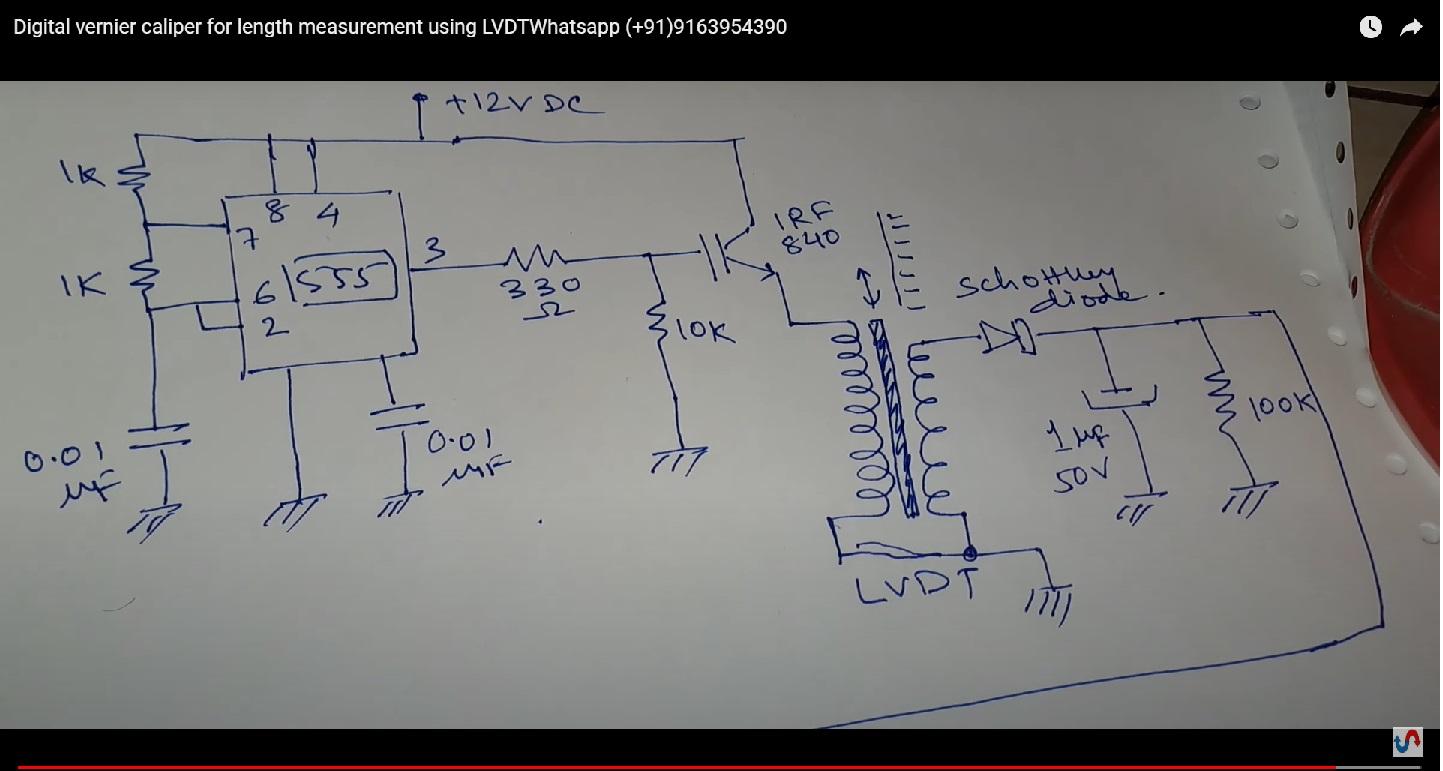 Digital vernier caliper for length measurement using LVDTWhatsapp (+91)9163954390
+12V DC
1K
8 4
7
3
IRF
840
1K
6 555
2
330
Ω
10K
Schottky
diode.
0.01
µF
0.01
µF
1µF
50V
100K
LVDT